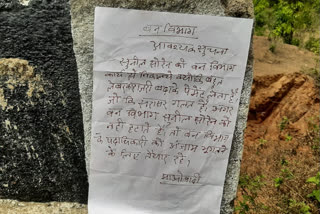 वन विभाग
आवश्यक सूचना
सुनील सोरेन को वन विभाग
काम से निकालो क्योंकि वह
पैमेंट लेता है
जो कि सरासर गलत है अगर
वन विभाग सुनील सोरेन को
नहीं हटाते हैं तो वन विभाग
के पदाधिकारी को अंजाम भुगतने
के लिए तैयार रहे।
माओवादी